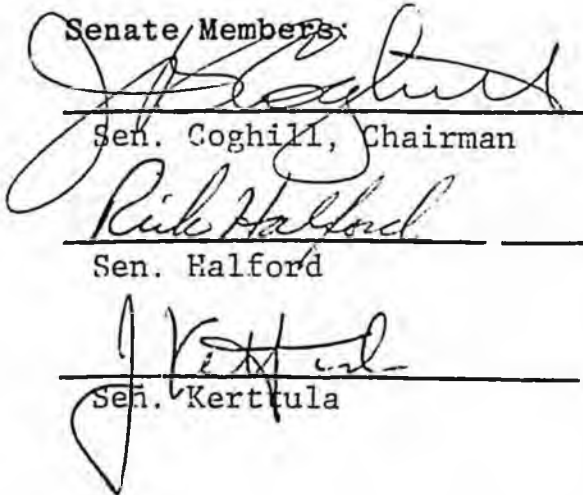 Senate Members:
J B Coghill
Sen. Coghill, Chairman
Rick Halford
Sen. Halford
J Kerttula
Sen. Kerttula